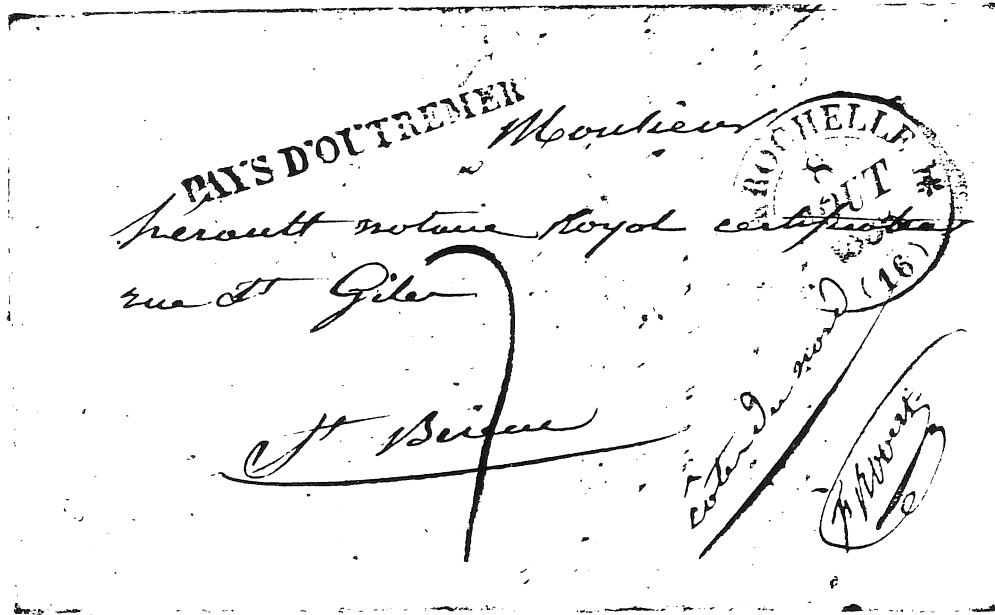 PAYS D'OUTREMER
Monsieur
ROCHELLE
8
OUT
(16)
hérault notaire Royal certificateur
rue St Giles
7
St Brieuc
côtes du nord